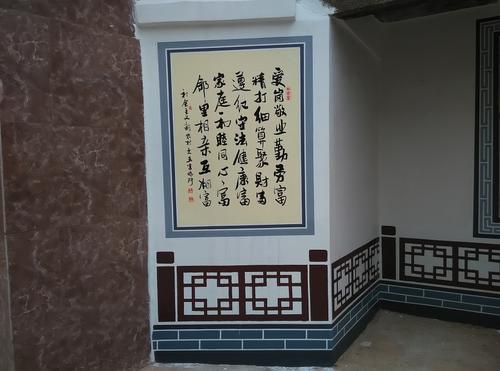 爱岗敬业勤劳富
精打细算聚财富
遵纪守法健康富
家庭和睦同心富
邻里相亲互相富